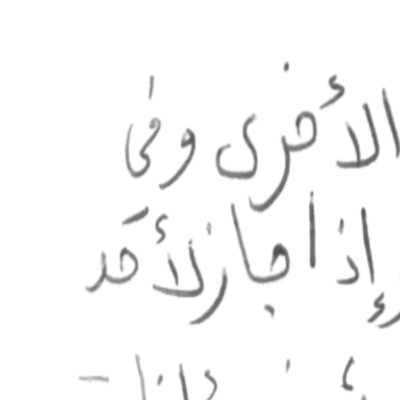 الأخرى وفى
إذا جاز لأحد